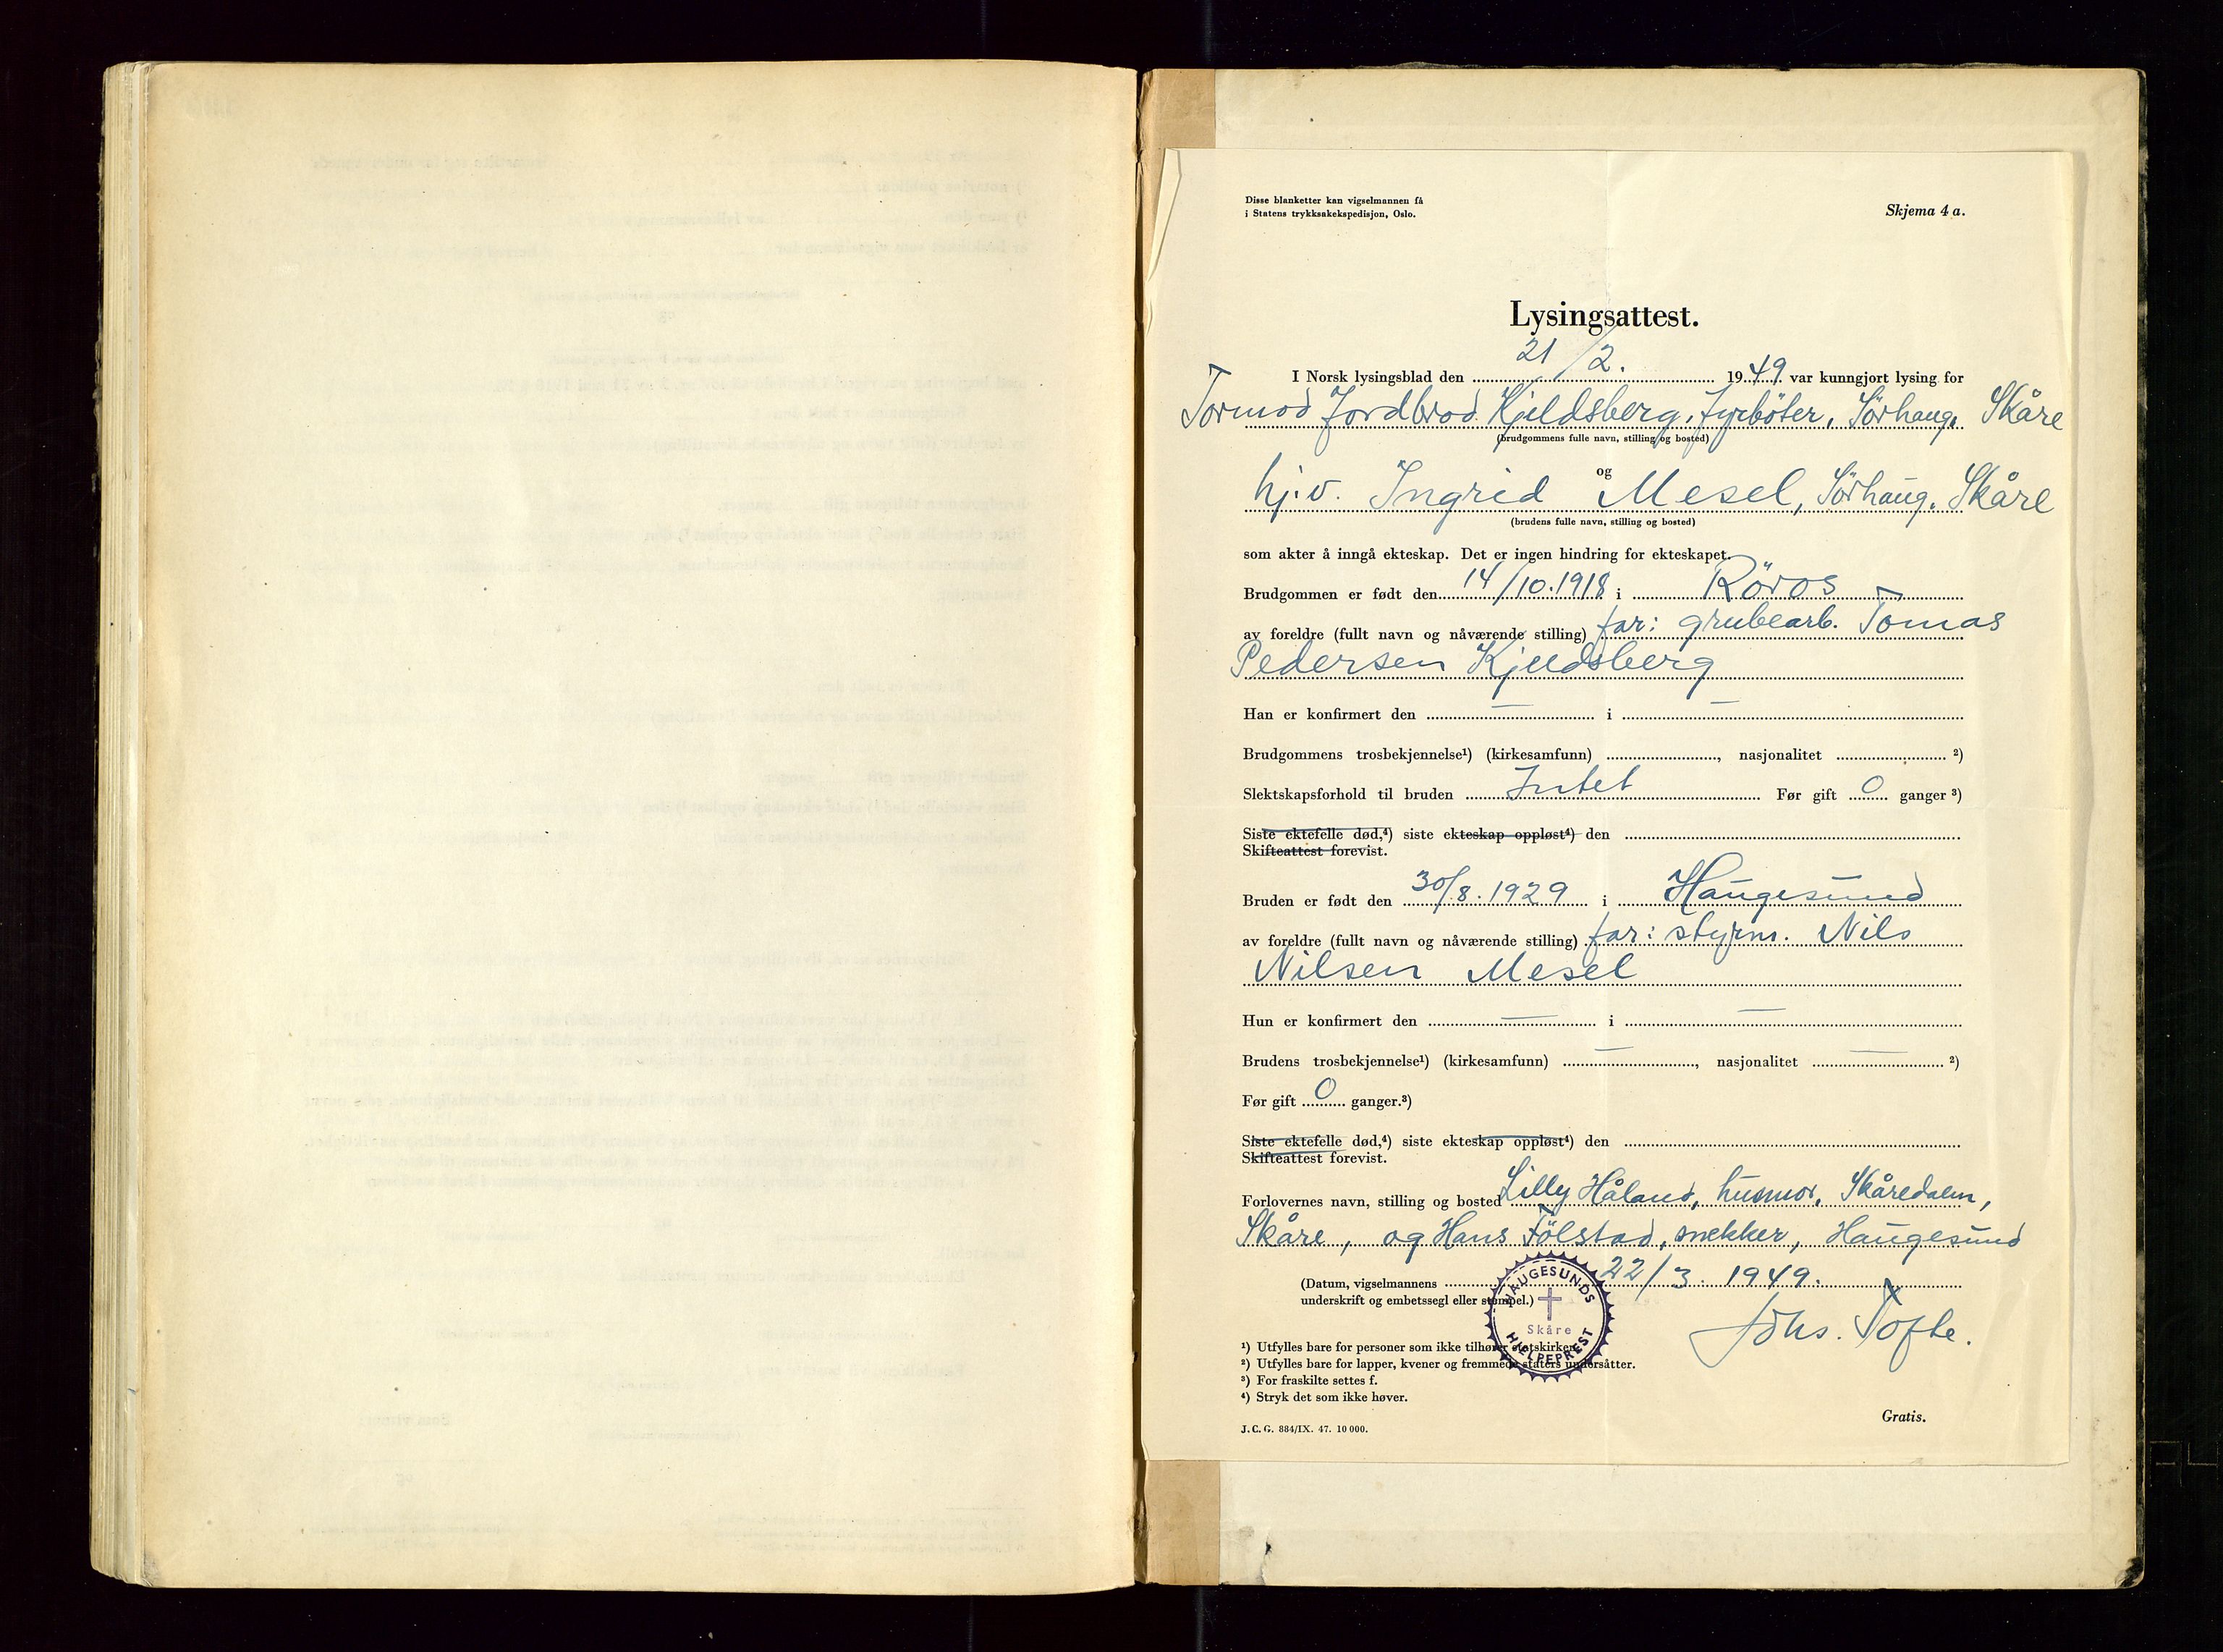 Disse blanketter kan vigselmannen få
i Statens trykksakekspedisjon, Oslo.
Skjema 4 a.
Lysingsattest.
I Norsk lysingsblad den 21/2. 1949 var kunngjort lysing for
Tormod Jordbrod Kjeldsberg, fyrböter, Sörhaug, Skåre
(brudgommens fulle navn, stilling og bosted)
og
hj.v. Ingrid Mesel, Sörhaug, Skåre
(brudens fulle navn, stilling og bosted)
som akter å inngå ekteskap. Det er ingen hindring for ekteskapet.
Brudgommen er født den 14/10.1918 i Röros
av foreldre (fullt navn og nåværende stilling) far: grubearb. Tomas
Pedersen Kjeldsberg
Han er konfirmert den — i —
Brudgommens trosbekjennelse¹) (kirkesamfunn) , nasjonalitet ²)
Slektskapsforhold til bruden Intet Før gift 0 ganger ³)
Siste ektefelle død,⁴) siste ekteskap oppløst⁴) den
Skifteattest forevist.
Bruden er født den 30/8.1929 i Haugesund
av foreldre (fullt navn og nåværende stilling) far: styrm. Nils
Nilsen Mesel
Hun er konfirmert den — i —
Brudens trosbekjennelse¹) (kirkesamfunn) — , nasjonalitet — ²)
Før gift 0 ganger.³)
Siste ektefelle død,⁴) siste ekteskap oppløst⁴) den
Skifteattest forevist.
Forlovernes navn, stilling og bosted Lilly Håland, husmor, Skåredalen,
Skåre, og Hans Fölstad, snekker, Haugesund
(Datum, vigselmannens 22/3. 1949.
underskrift og embetssegl eller stempel.)
HAUGESUNDS
Skåre
HJELPEPREST
Johs. Tofte.
¹) Utfylles bare for personer som ikke tilhører statskirken.
²) Utfylles bare for lapper, kvener og fremmede staters undersåtter.
³) For fraskilte settes f.
⁴) Stryk det som ikke høver.
Gratis.
J. C. G. 884/IX. 47. 10 000.